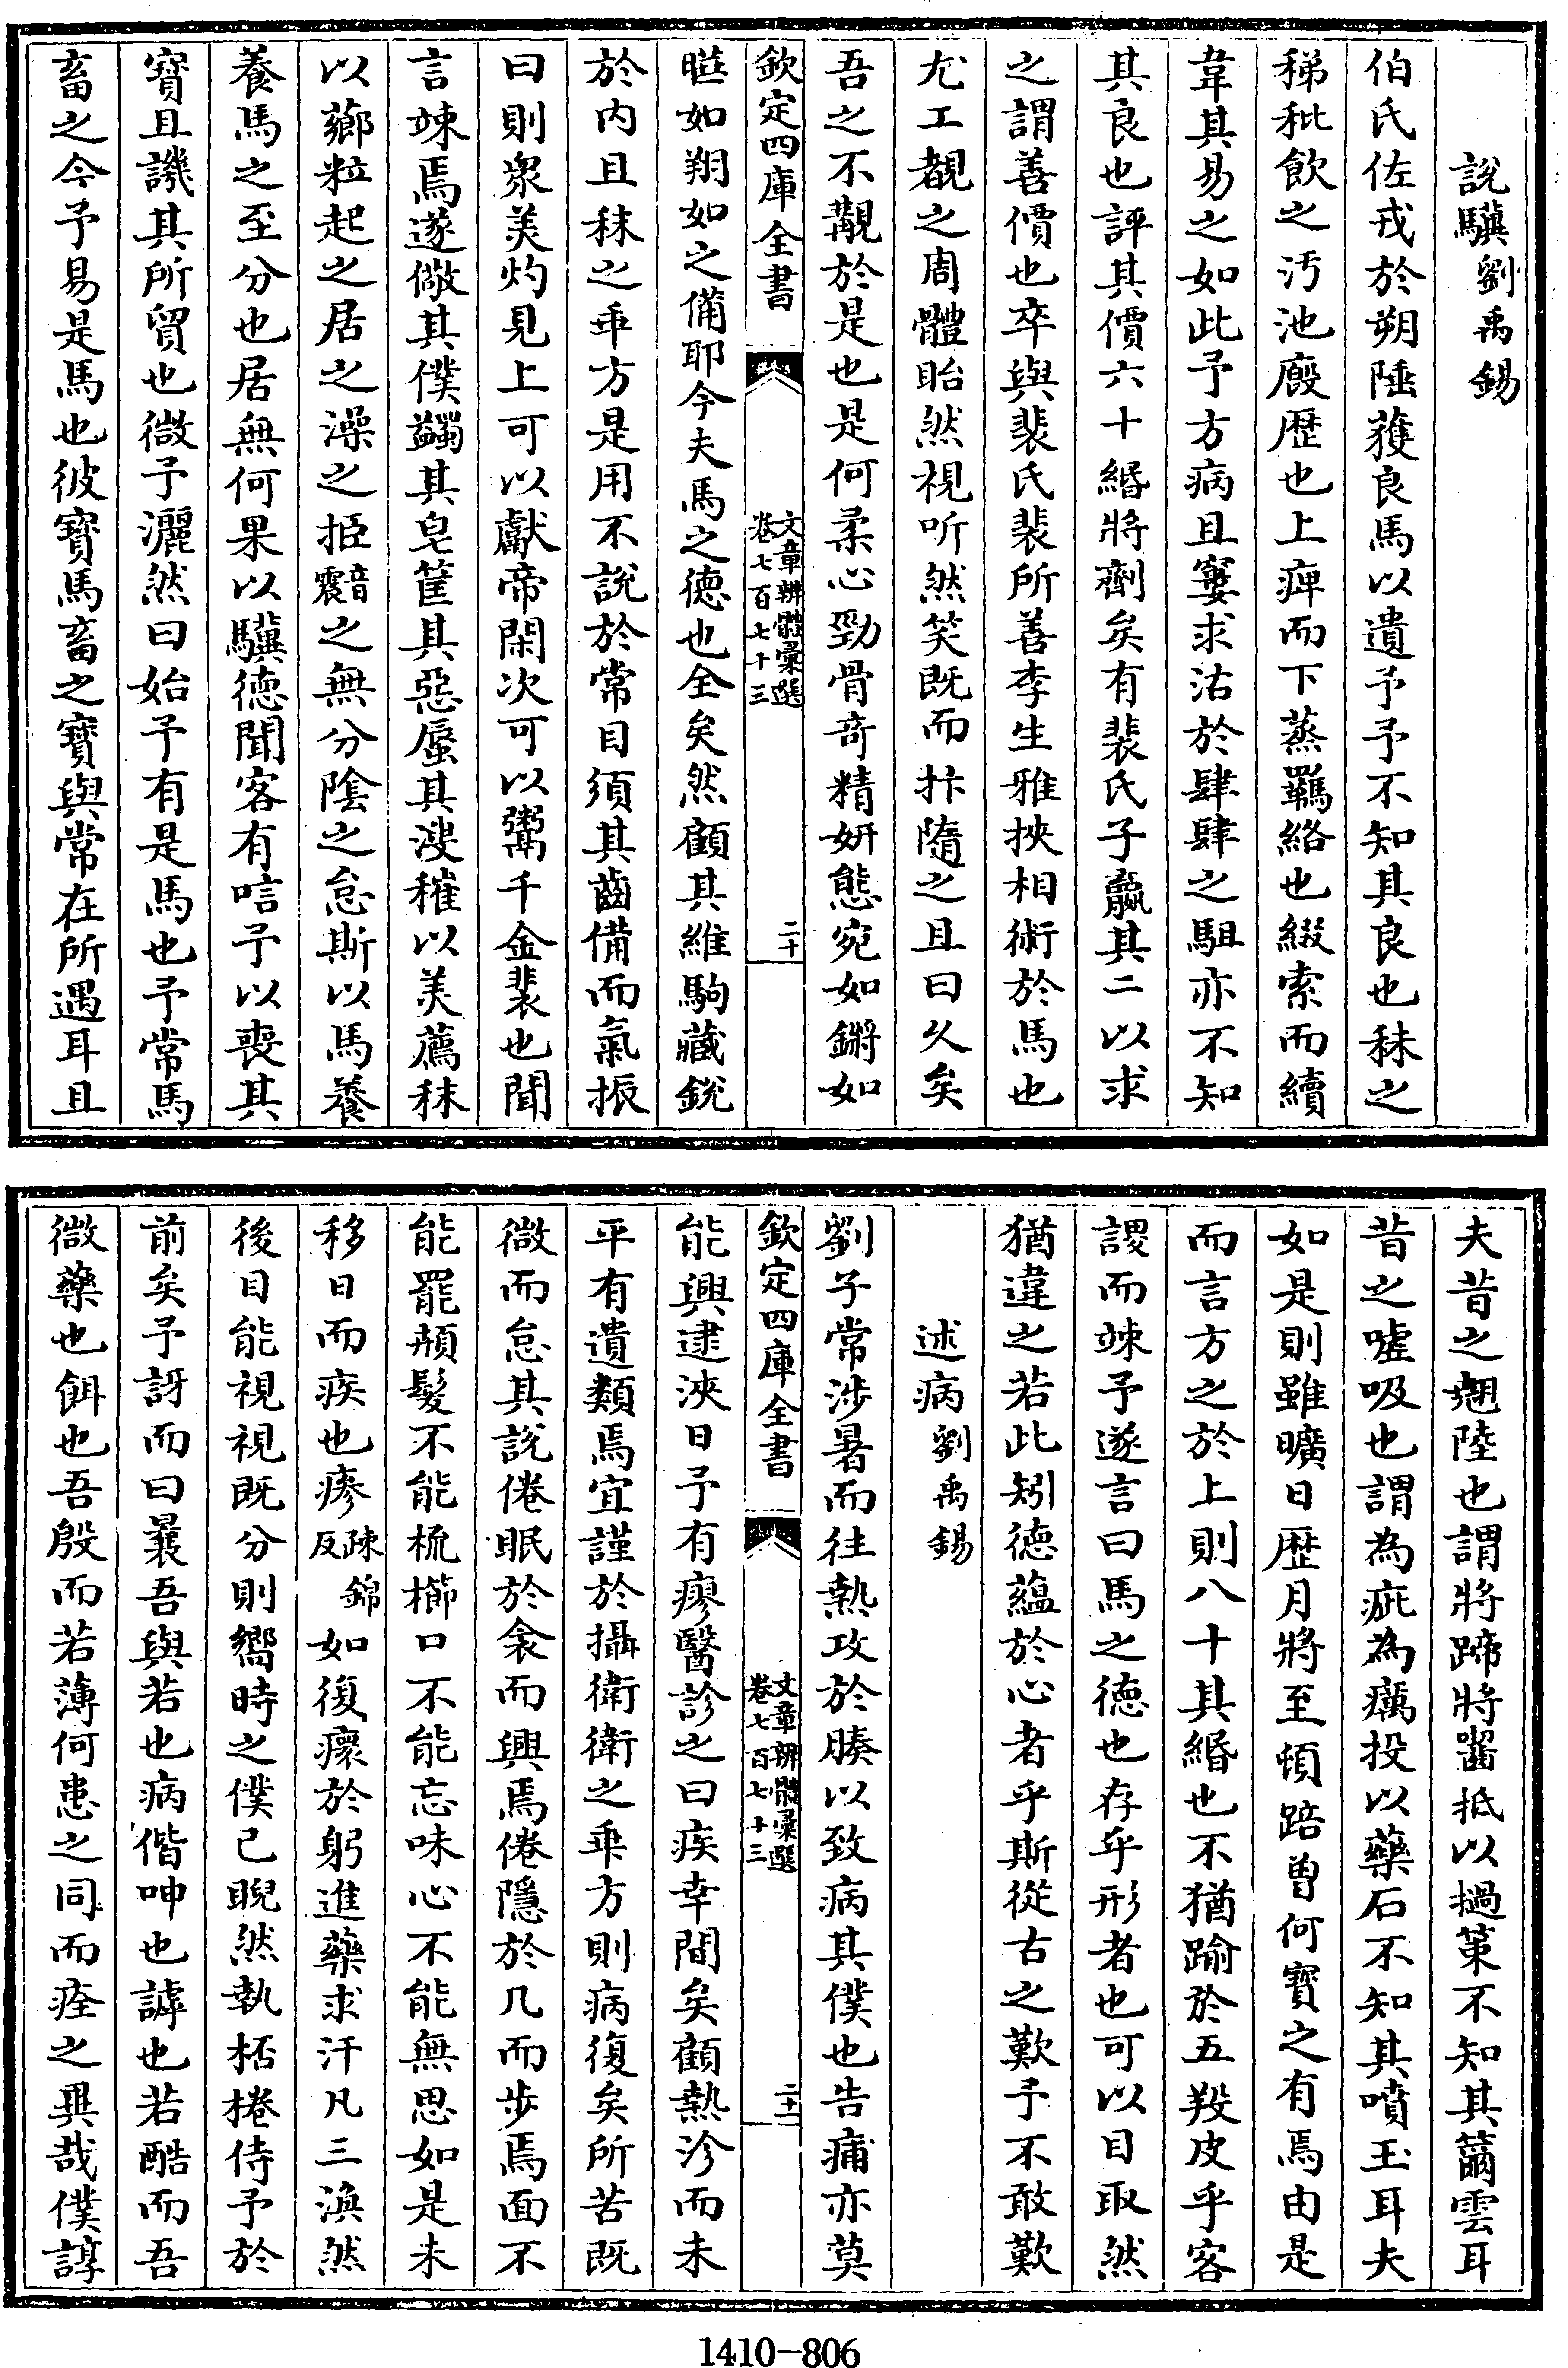 說驥劉禹錫
伯氏佐戎於朔陲獲良馬以遺予予不知其良也秣之
稊秕飲之汚池廐歴也上痺而下蒸羈絡也綴索而續
韋其易之如此予方病且窶求沽於肆肆之駔亦不知
其良也評其價六十緡將劑矣有裴氏子贏其二以求
之謂善價也卒與裴氏裴所善李生雅挾相術於馬也
尤工覩之周體眙然視听然笑既而抃隨之且曰久矣
吾之不覯於是也是何柔心勁骨奇精妍態宛如鏘如
曄如翔如之備耶今夫馬之德也全矣然顧其維駒藏銳
於内且秣之乖方是用不說於常目須其齒備而氣振
曰則衆美灼見上可以獻帝閑次可以鬻千金裴也聞
言竦焉遂儆其僕蠲其皂筐其惡蜃其溲穅以美薦秣
以薌粒起之居之澡之挋音震之無分陰之怠斯以馬養
養馬之至分也居無何果以驥德聞客有唁予以喪其
寳且譏其所貿也微予灑然曰始予有是馬也予常馬
畜之今予易是馬也彼寳馬畜之寳與常在所遇耳且
欽定四庫全書
文章辨體彚選
卷七百七十三
二十
夫昔之翹陸也謂將蹄將齧抵以撾策不知其籋雲耳
昔之噓吸也謂為疵為癘投以藥石不知其噴玉耳夫
如是則雖曠日歴月將至頓踣曽何寳之有焉由是
而言方之於上則八十其緡也不猶踰於五羖皮乎客
謖而竦予遂言曰馬之德也存乎形者也可以目取然
猶違之若此矧德藴於心者乎斯從古之歎予不敢歎
述病劉禹錫
劉子常涉暑而往熱攻於腠以致病其僕也告痡亦莫
能興逮浹日予有瘳醫診之曰疾幸間矣顧熱沴而未
平有遺類焉宜謹於攝衛衛之乖方則病復矣所苦既
微而怠其說倦眠於衾而興焉倦隱於几而步焉面不
能罷頮髪不能梳櫛口不能忘味心不能無思如是未
移日而疾也瘆疎錦反如復瘝於躬進藥求汗凡三渙然
後目能視視既分則嚮時之僕已睨然執桮棬侍予於
前矣予訝而曰曩吾與若也病偕呻也謼也若酷而吾
微藥也餌也吾殷而若薄何患之同而痊之異哉僕諄
欽定四庫全書
文章辨體彚選
卷七百七十三
二十一
1410-806